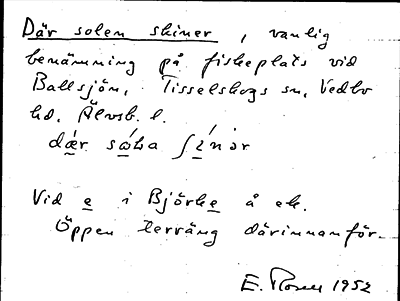 Där solen skiner, vanlig
benämning på fiskeplats vid
Ballsjön, Tisselskogs sn, Vedbo
hd. Älvsb. l.
Vid e i Björke å ek.
Öppen terräng därinnanför.
E. Rosen 1952